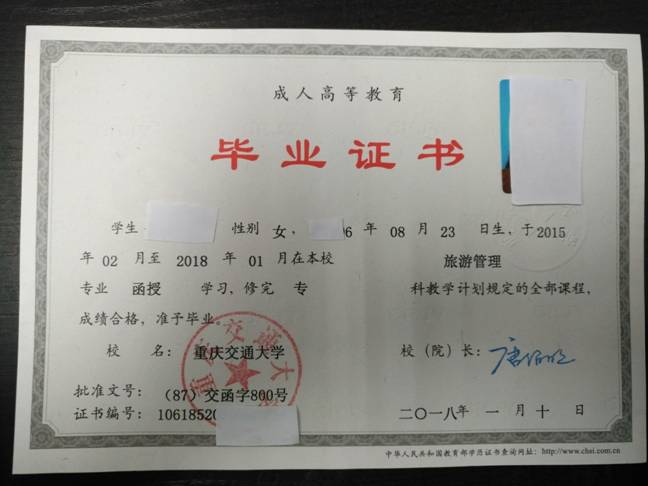 成人高等教育
毕业证书
学生 性别 女， 6 年 08 月 23 日生，于2015
年 02 月至 2018 年 01 月在本校 旅游管理
专业 函授 学习，修完 专 科教学计划规定的全部课程，
成绩合格，准予毕业。
校 名： 重庆交通大学 校（院）长：
批准文号：（87）交函字800号
证书编号：1061852 二〇一八年 一 月 十 日
中华人民共和国教育部学历证书查询网址：http://www.chsi.com.cn